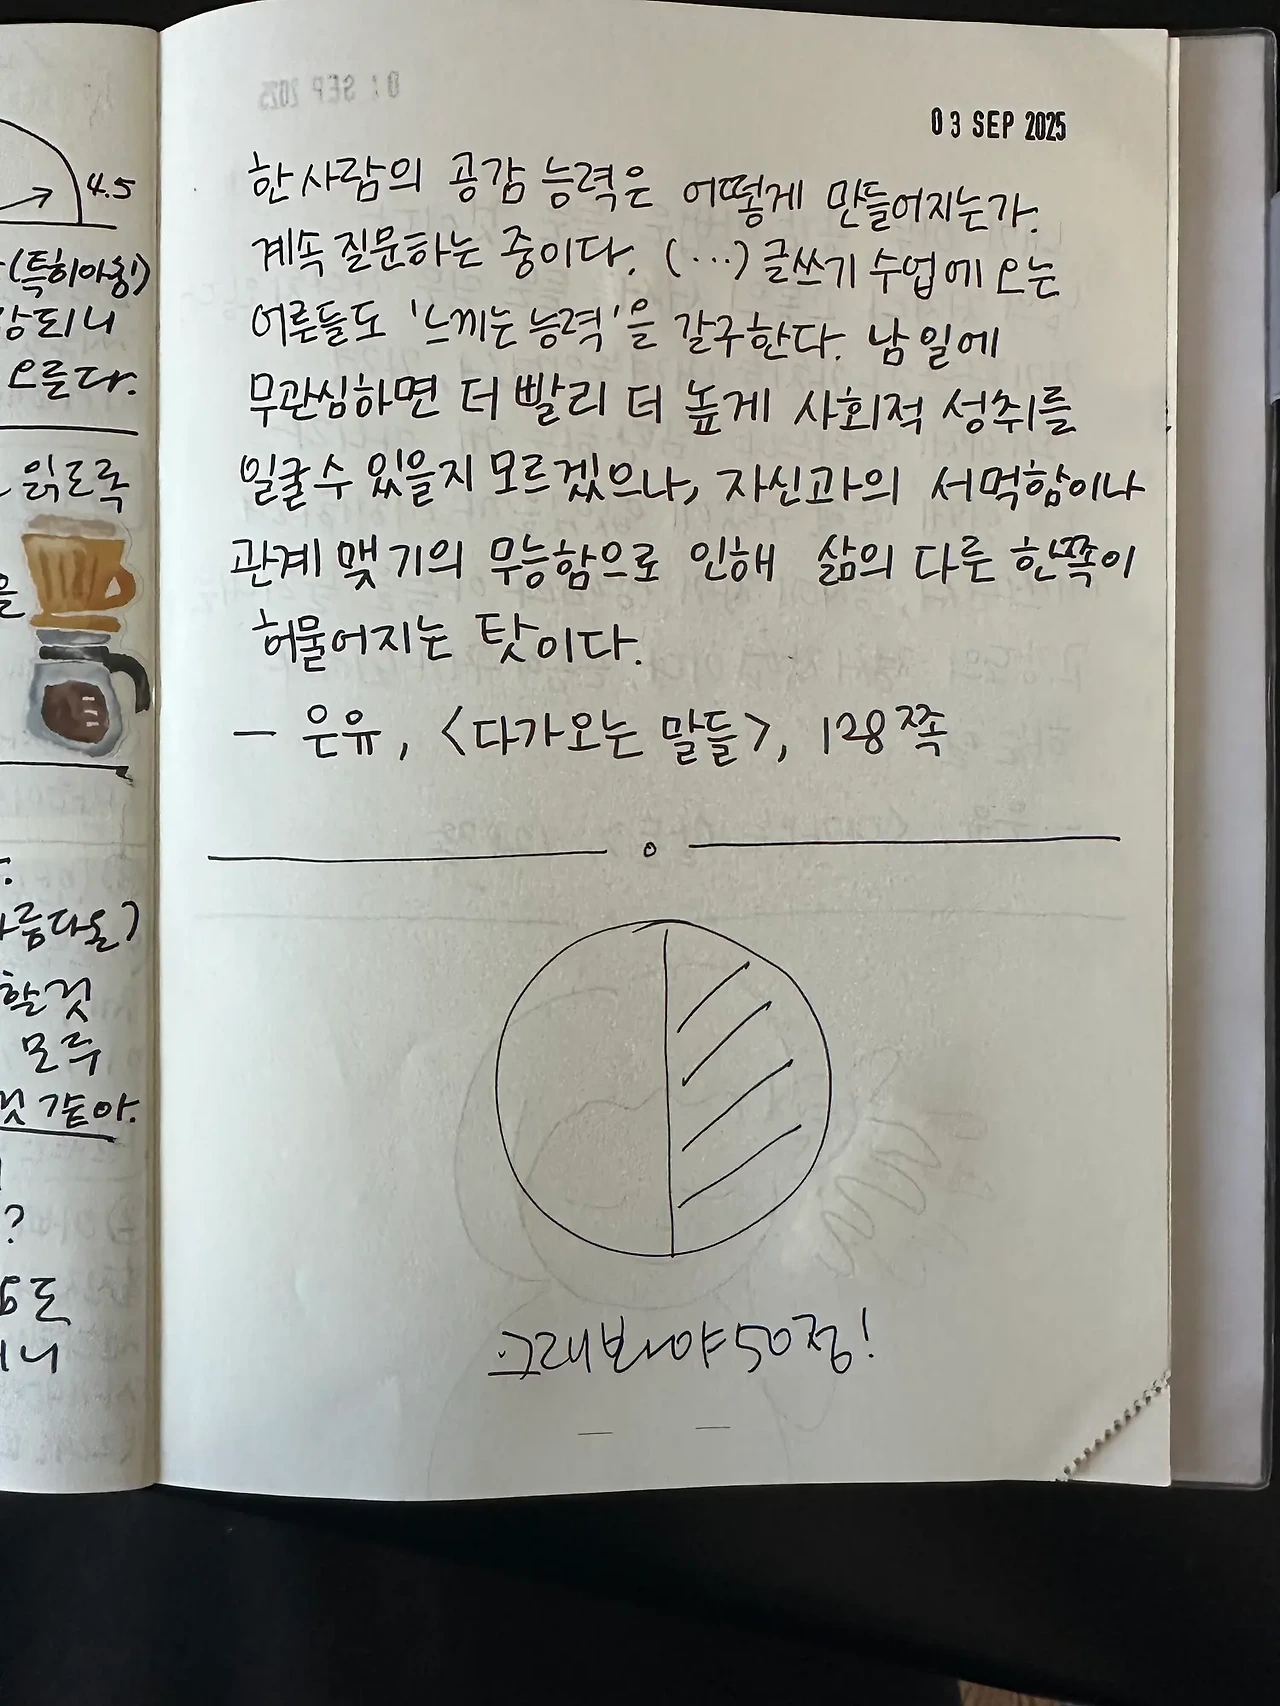 4.5
(특히아침!)
감되니
오른다.
읽도록
을
아름다울?
할것
모두
것 같아.
?
도
니
01 SEP 2025
03 SEP 2025
한 사람의 공감 능력은 어떻게 만들어지는가.
계속 질문하는 중이다. (...) 글쓰기 수업에 오는
어른들도 '느끼는 능력'을 갈구한다. 남 일에
무관심하면 더 빨리 더 높게 사회적 성취를
일굴 수 있을지 모르겠으나, 자신과의 서먹함이나
관계 맺기의 무능함으로 인해 삶의 다른 한쪽이
허물어지는 탓이다.
— 은유, <다가오는 말들>, 128쪽
그래봐야 50점!